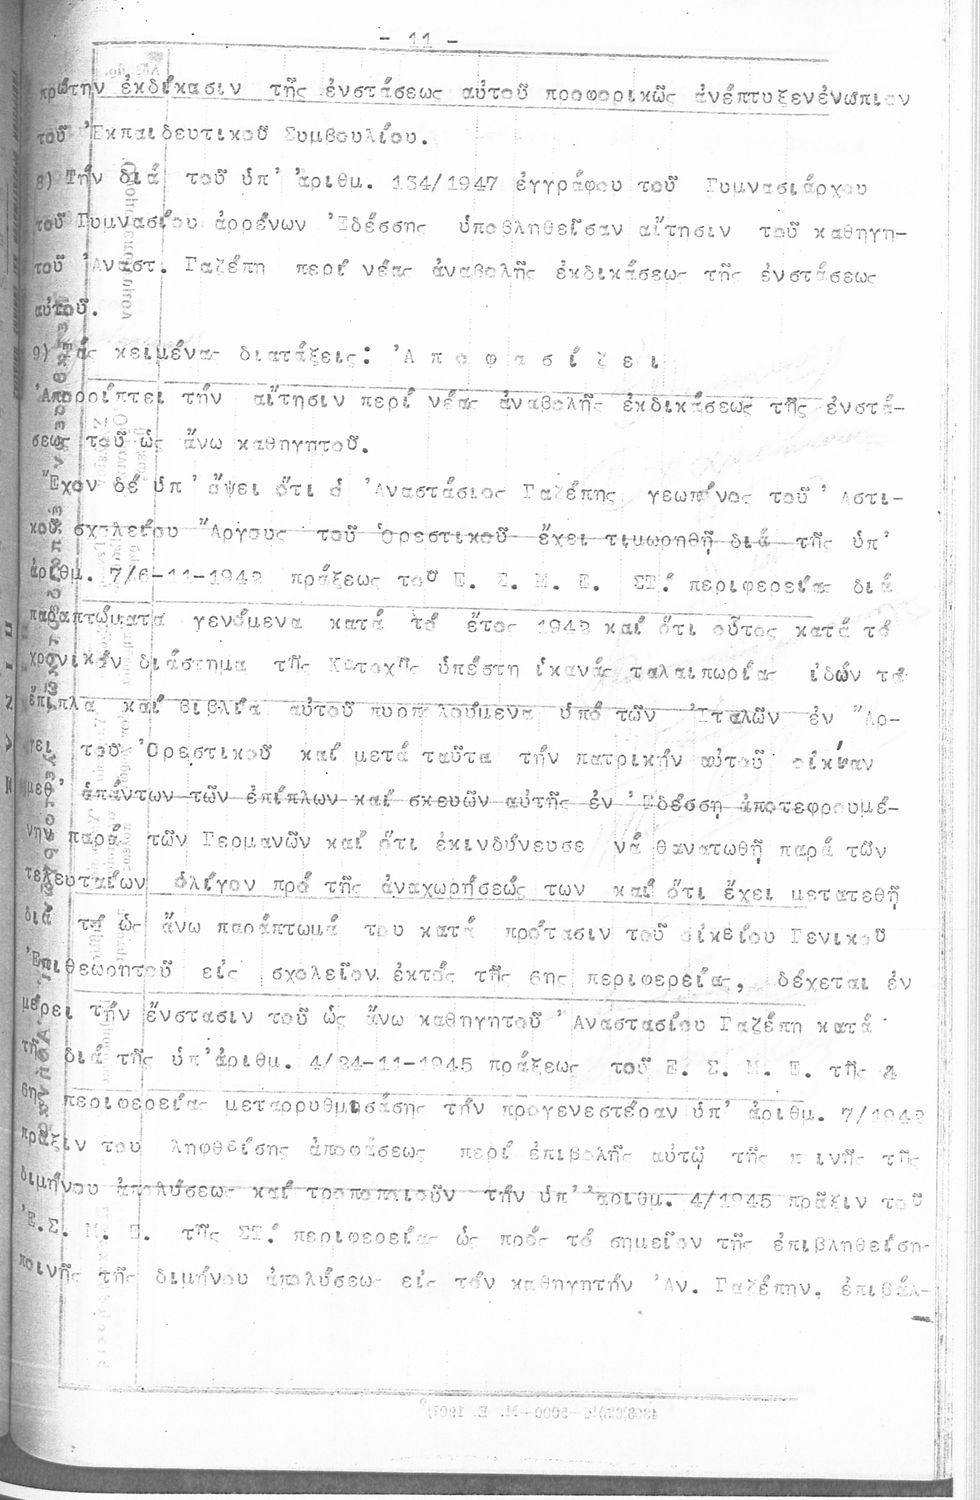 - 11 -
πρώτην ἐκδίκασιν τῆς ἐνστάσεως αὐτοῦ προφορικῶς ἀνέπτυξενἐνώπιον
τοῦ Ἐκπαιδευτικοῦ Συμβουλίου.
8) Τήν διά τοῦ ὑπ' ἀριθμ. 134/1947 ἐγγράφου τοῦ Γυμνασιάρχου
τοῦ Γυμνασίου ἀρρένων Ἐδέσσης ὑποβληθεῖσαν αἴτησιν τοῦ καθηγη-
τοῦ Ἀναστ. Γαζέπη περί νέας ἀναβολῆς ἐκδικάσεως τῆς ἐνστάσεως
αὐτοῦ.
9) Τάς κειμένας διατάξεις: Ἀ π ο φ α σ ί ζ ε ι
Ἀπορρίπτει τήν αἴτησιν περί νέας ἀναβολῆς ἐκδικάσεως τῆς ἐνστά-
σεως τοῦ ὡς ἄνω καθηγητοῦ.
Ἔχον δέ ὑπ' ὄψει ὅτι ὁ Ἀναστάσιος Γαζέπης γεωπόνος τοῦ Ἀστι-
κοῦ σχολείου Ἄργους τοῦ Ὀρεστικοῦ ἔχει τιμωρηθῆ διά τῆς ὑπ'
ἀριθμ. 7/6-11-1942 πράξεως τοῦ Ε. Σ. Μ. Ε. ΣΤ΄ περιφερείας διά
παραπτώματα γενόμενα κατά τό ἔτος 1942 καί ὅτι οὗτος κατά τό
χρονικόν διάστημα τῆς Κατοχῆς ὑπέστη ἱκανάς ταλαιπωρίας ἰδών τά
ἔπιπλα καί βιβλία αὐτοῦ πυρπολούμενα ὑπό τῶν Ἰταλῶν ἐν Ἄρ-
γει τοῦ Ὀρεστικοῦ καί μετά ταῦτα τήν πατρικήν αὐτοῦ οἰκίαν
μεθ' ἁπάντων τῶν ἐπίπλων καί σκευῶν αὐτῆς ἐν Ἐδέσσῃ ἀποτεφρουμέ-
νην παρά τῶν Γερμανῶν καί ὅτι ἐκινδύνευσε νά θανατωθῆ παρά τῶν
τελευταίων ὀλίγον πρό τῆς ἀναχωρήσεώς των καί ὅτι ἔχει μετατεθῆ
διά τό ὡς ἄνω παράπτωμά του κατά πρότασιν τοῦ οἰκείου Γενικοῦ
Ἐπιθεωρητοῦ εἰς σχολεῖον ἐκτός τῆς 6ης περιφερείας, δέχεται ἐν
μέρει τήν ἔνστασιν τοῦ ὡς ἄνω καθηγητοῦ Ἀναστασίου Γαζέπη κατά
τῆς διά τῆς ὑπ' ἀριθμ. 4/24-11-1945 πράξεως τοῦ Ε. Σ. Μ. Ε. τῆς
6ης περιφερείας μεταρρυθμισάσης τήν προγενεστέραν ὑπ' ἀριθμ. 7/1942
πρᾶξιν του ληφθείσης ἀποφάσεως περί ἐπιβολῆς αὐτῷ τῆς ποινῆς τῆς
διμήνου ἀπολύσεως καί τροποποιοῦν τήν ὑπ' ἀριθμ. 4/1945 πρᾶξιν τοῦ
Ἐ.Σ. Μ. Ε. τῆς ΣΤ΄ περιφερείας ὡς πρός τό σημεῖον τῆς ἐπιβληθείσης
ποινῆς τῆς διμήνου ἀπολύσεως εἰς τόν καθηγητήν Ἀν. Γαζέπην, ἐπιβάλ-